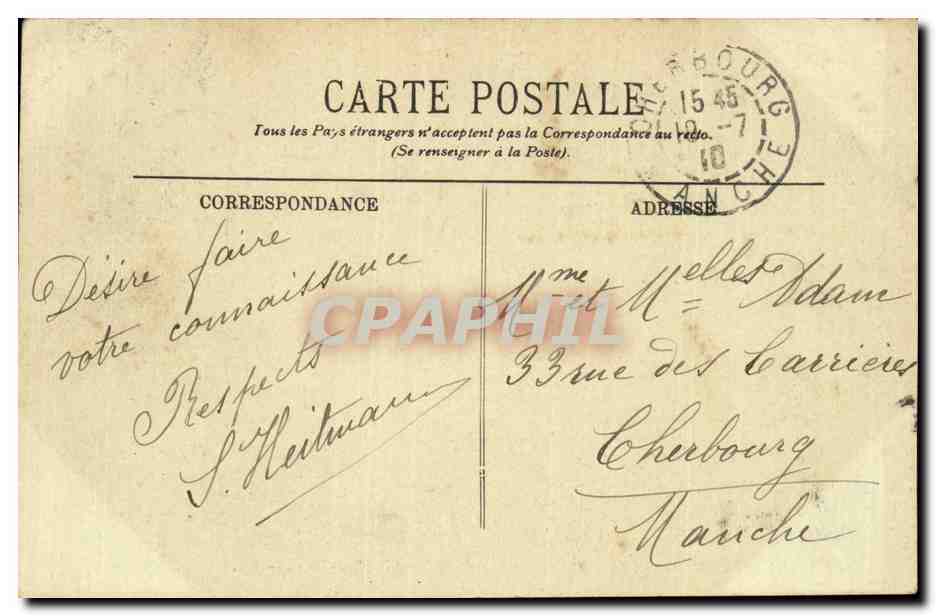 CARTE POSTALE
Tous les Pays étrangers n'acceptent pas la Correspondance au recto.
(Se renseigner à la Poste).
CHERBOURG
15 45
-7
10
MANCHE
CORRESPONDANCE
ADRESSE
Désire faire
votre connaissance
Respects
S. Heitmann
Mme et Melles Adam
33 rue des Carrières
Cherbourg
Manche
CPAPHIL